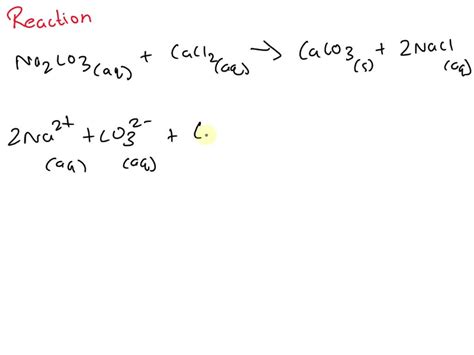 Reaction
Na2CO3(aq) + CaCl2(aq) → CaCO3(s) + 2NaCl(aq)
2Na2+(aq) + CO32-(aq) + C